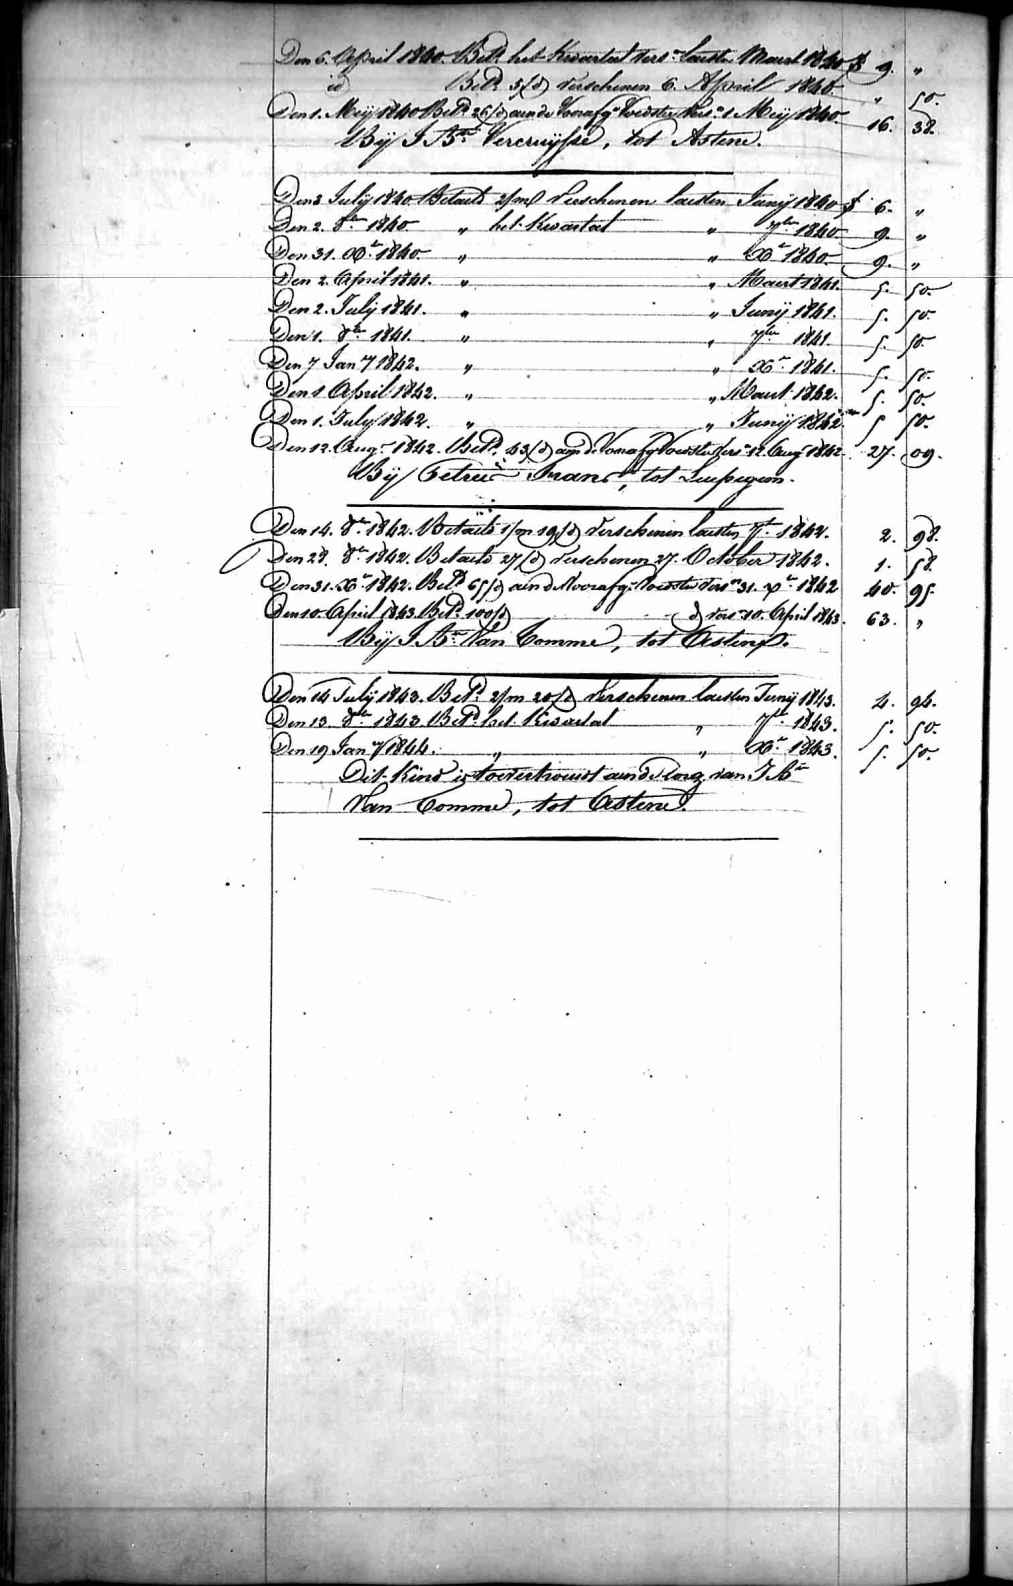 Den 6. April 1840. Bet.d het Kwartaal vers.n laasten Maart 1840 f 9. "
id Bet.d 5/d verschenen 6. April 1840. " 50.
Den 1. Meij 1840 Bet.d 26/d aan de Voorafg.e Voedster Vers.n 1 Meij 1840. 16. 38.
Bij J B.te Vercruijsse, tot Astene.
Den 3 Julij 1840 Betaald 2/m verschenen laasten Junij 1840 f 6. "
Den 2. 8ber 1840. " het Kwartaal " 7ber 1840 9. "
Den 31. Xr 1840. " " Xr 1840. 9. "
Den 2. April 1841. " " Maart 1841. 5. 50.
Den 2. Julij 1841. " " Junij 1841. 5. 50.
Den 1. 8ber 1841. " " 7ber 1841. 5. 50.
Den 7 Jan.y 1842. " " Xr 1841. 5. 50.
Den 1 April 1842. " " Maart 1842. 5. 50.
Den 1. Julij 1842. " " Junij 1842. 5 50.
Den 12. Aug.t 1842. Bet.d 43/d aan de Voorafg.e Voedster Vers.n 12. Aug.t 1842 27. 09.
Bij Frans, tot
Den 14. 8r 1842. Betaald 1/m 19/d verschenen laasten 7r 1842. 2. 98.
Den 28. 8r 1842. Betaald 27/d verschenen 27. October 1842. 1. 58.
Den 31. Xr 1842. Bet.d 65/d aan de Voorafg.e Voedster Vers.n 31. Xr 1842 40. 95.
Den 10. April 1843. Bet.d 100/d d vers.n 10. April 1843. 63. "
Bij J B.te Van Tomme, tot Astene.
Den 14 Julij 1843. Bet.d 2/m 20/d verschenen laasten Junij 1843. 4. 94.
Den 13. 8ber 1843. Bet.d het Kwartaal " 7ber 1843. 5. 50.
Den 19 Jan.y 1844. " " Xr 1843. 5. 50.
Dit Kind is toevertrouwt aan de Zorg van J B.te
Van Tomme, tot Astene.